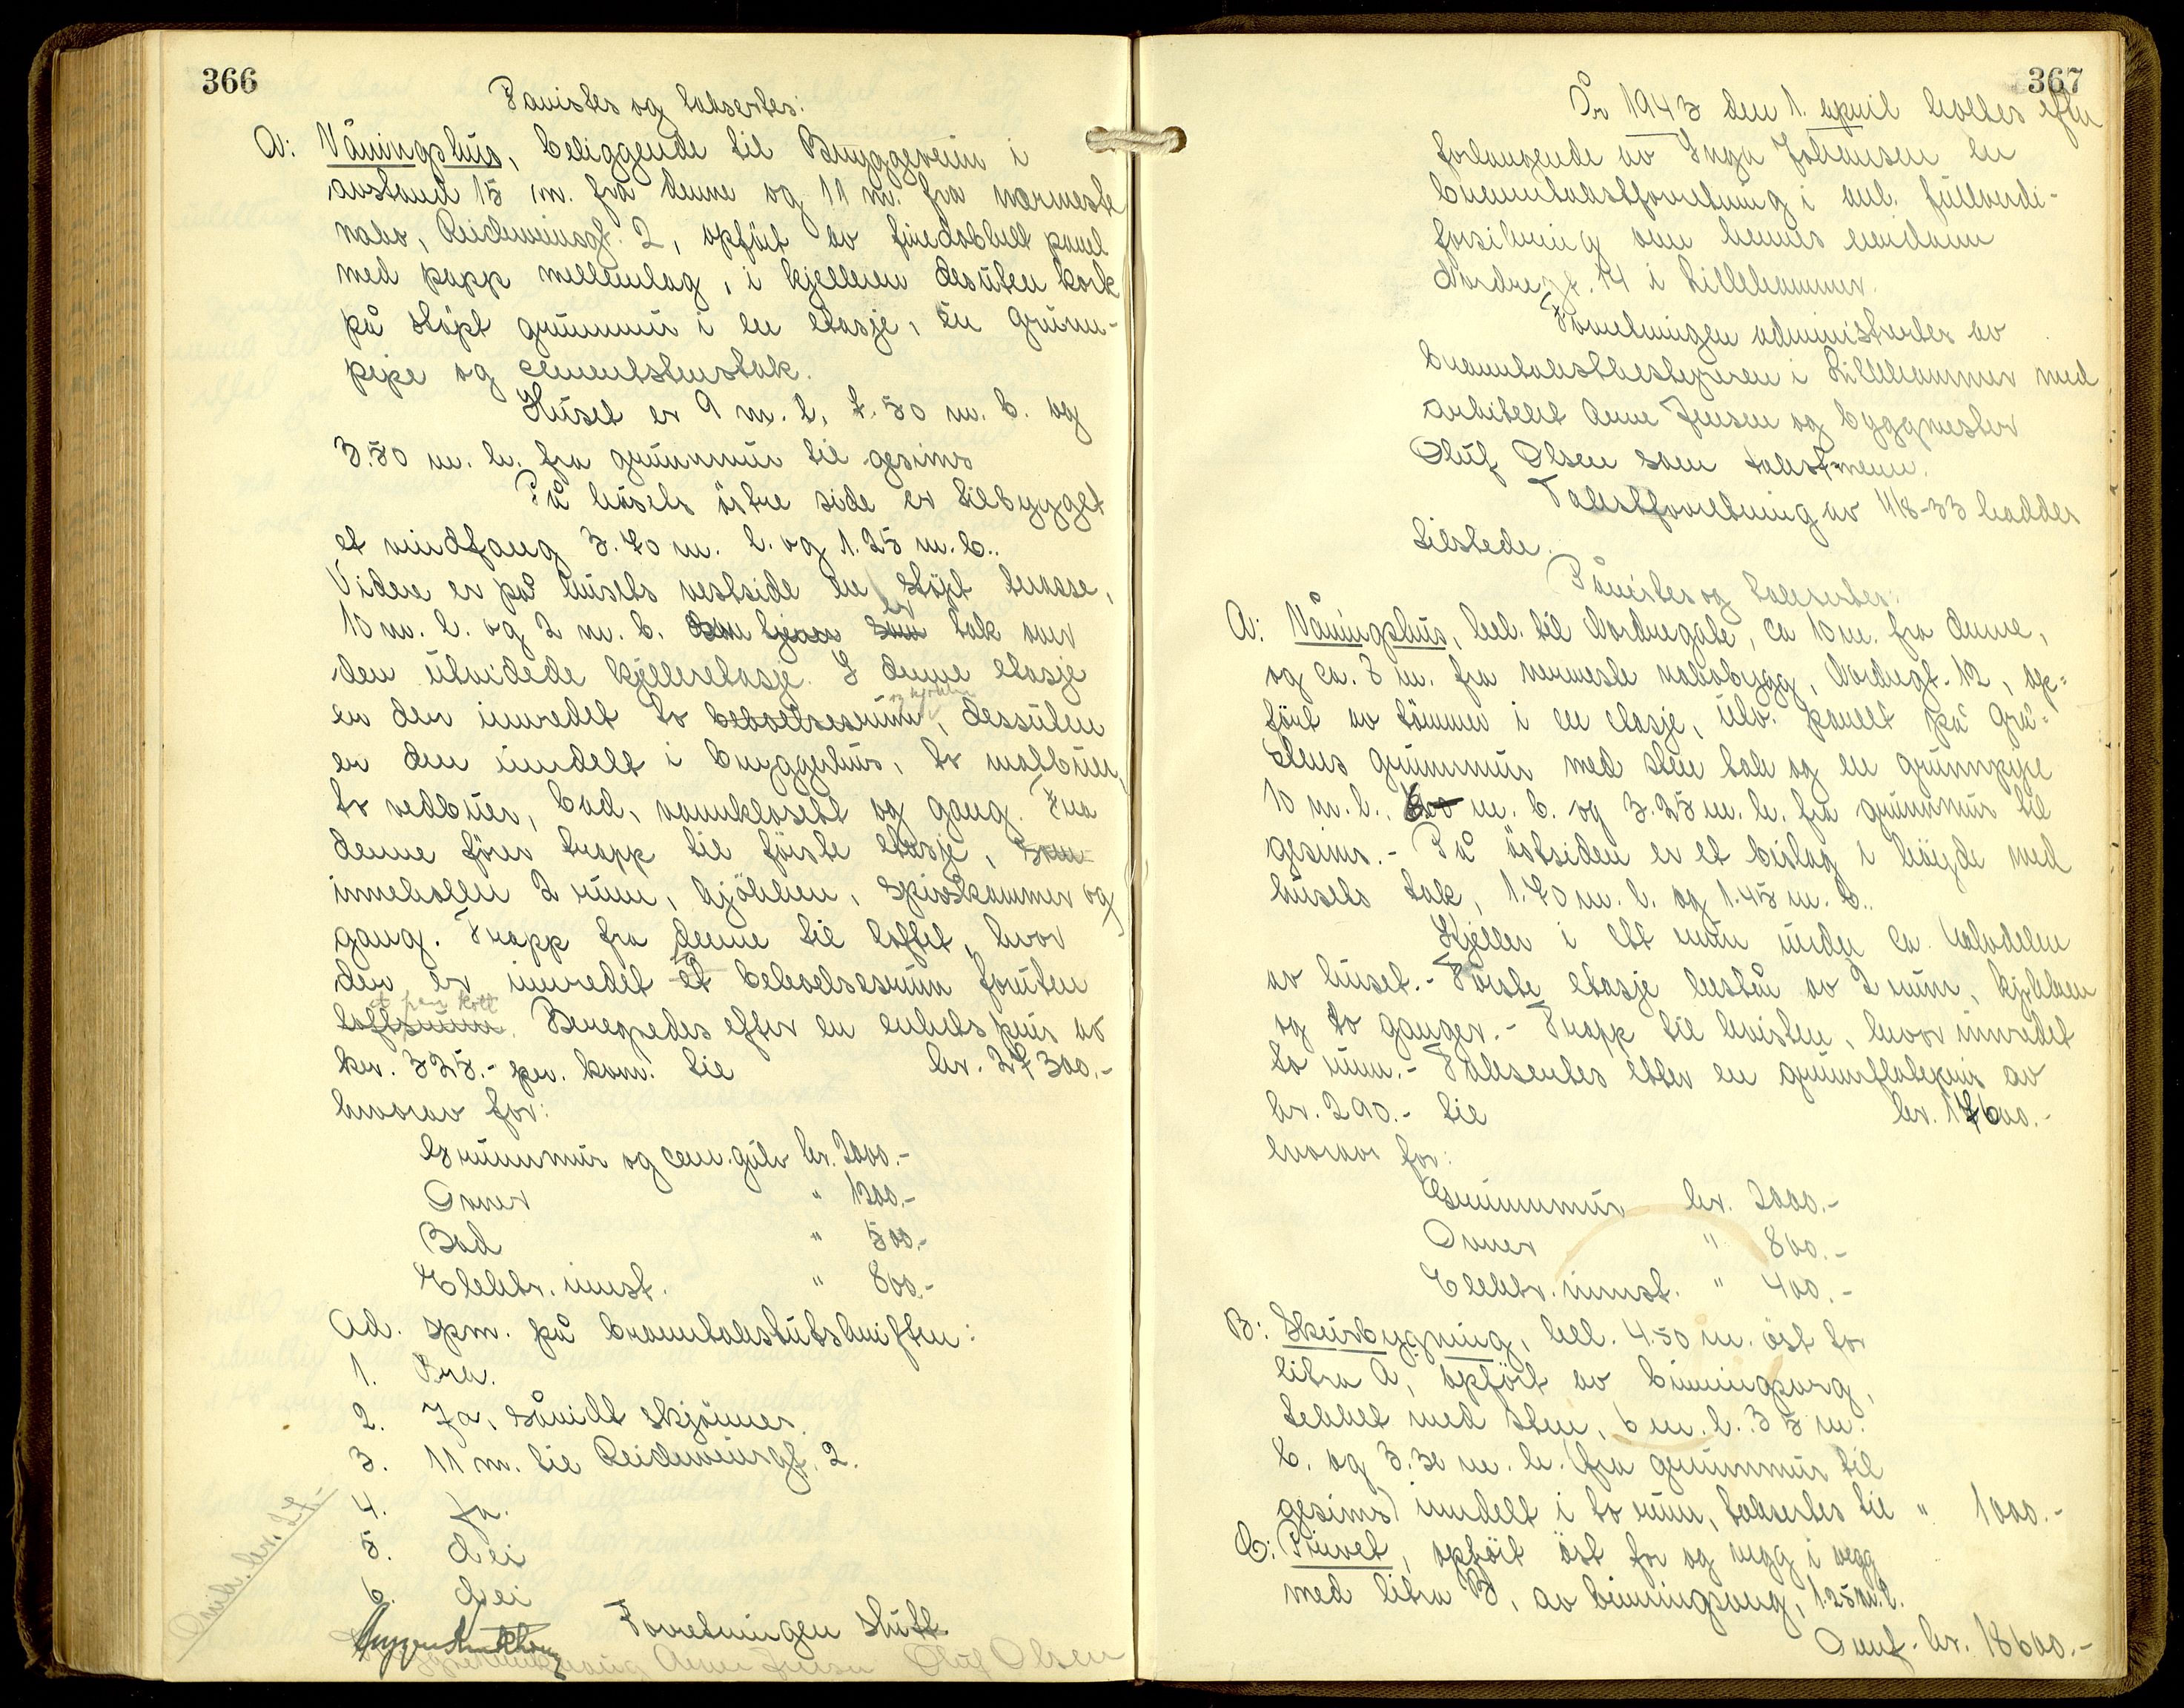 366
Påvistes og taksertes:
A: Våningshus, beliggende til Bryggeveien i
avstand 15 m. fra denne og 11 m. fra nærmeste
nabo, Reidarveinsgt. 2, opført av firedobbelt panel
med papp mellemlag, i kjelleren desuten kork
på støpt grunnmur i en etasje, en grunn-
pipe og cementstenstak.
Huset er 9 m. l. 7.50 m. b. og
3.50 m. h. fra grunnmur til gesims
På husets östre side er tilbygget
et vindfang 3.70 m. l. og 1.25 m. b..
Videre er på husets vestside en støpt terasse,
10 m. l. og 2 m. b. som tjener som er tak over
den utvidede kjelleretasje. I denne etasje
er der innredet to beboelsesrum og kjökken, dessuten
er den inndelt i bryggerhus, to matbuer,
to vedbuer, bad, vannklosett og gang. Fra
denne fører trapp til förste etasje, som
inneholder 2 rum, kjökken, spisskammer og
gang. Trapp fra denne til loftet, hvor
der er innredet et beboelsesrum foruten
loftsrum et par kott. Beregnedes efter en enhetspris av
kr. 325.- pr. kvm. til kr. 27300.-
hvorav for:
Grunnmur og cem. gulv kr. 2000.-
Ovner " 1200.-
Bad " 500.-
Elektr. innst. " 800.-
Ad. spm. på branntakstutskriften:
1. Bra.
2. Ja, såvidt skjønnes.
3. 11 m. til Reidarveinsgt. 2.
4. Ja.
5. Nei
6. Nei
Forretningen slutt.
Arne Jensen Oluf Olsen
367
År 1943 den 1. april holdtes efter
forlangende av Inga Johansen en
branntakstforretning i anl. fullverdi-
forsikring av hennes eiendom
Nordregt. 14 i Lillehammer.
Forretningen administrertes av
branntakstbestyreren i Lillehammer med
arkitekt Arne Jensen og byggmester
Oluf Olsen som takstmenn.
Takstforretning av 11/8-33 haddes
tilstede.
Påvistes og taksertes:
A: Våningshus, bel. til Nordregate, ca 10 m. fra denne,
og ca. 8 m. fra nermeste nabobygg, Nordregt. 12, op-
fört av tömmer i en etasje, utv. panelt på grå-
stens grunnmur med sten tak og en grunnpipe
10 m. l., 6 m. b. og 3.25 m. h. fra grunnmur til
gesims.- På östsiden er et bislag i höyde med
husets tak, 1.70 m. l. og 1.45 m. b..
Kjeller i ett rum under ca. halvdelen
av huset.- Förste etasje består av 2 rum, kjökken
og to ganger.- Trapp til kvisten, hvor innredet
to rum.- Taksertes etter en grunnflatepris av
kr. 290.- til kr. 17600.-
hvorav for:
Grunnmur kr. 2000.-
Ovner " 800.-
Elektr. innst. " 400.-
B: Skurbygning, bel. 4.50 m. öst for
litra A, opfört av binningsverg,
tekket med sten, 6 m. l. 3 5 m.
b. og 3.30 m. h. (fra grunnmur til
gesims) inndelt i to rum, taksertes til " 1000.-
C: Privet, opfört öst for og vegg i vegg
med litra B, av binningsverg, 1.25 m. l.
Ovnf. kr. 18600.-